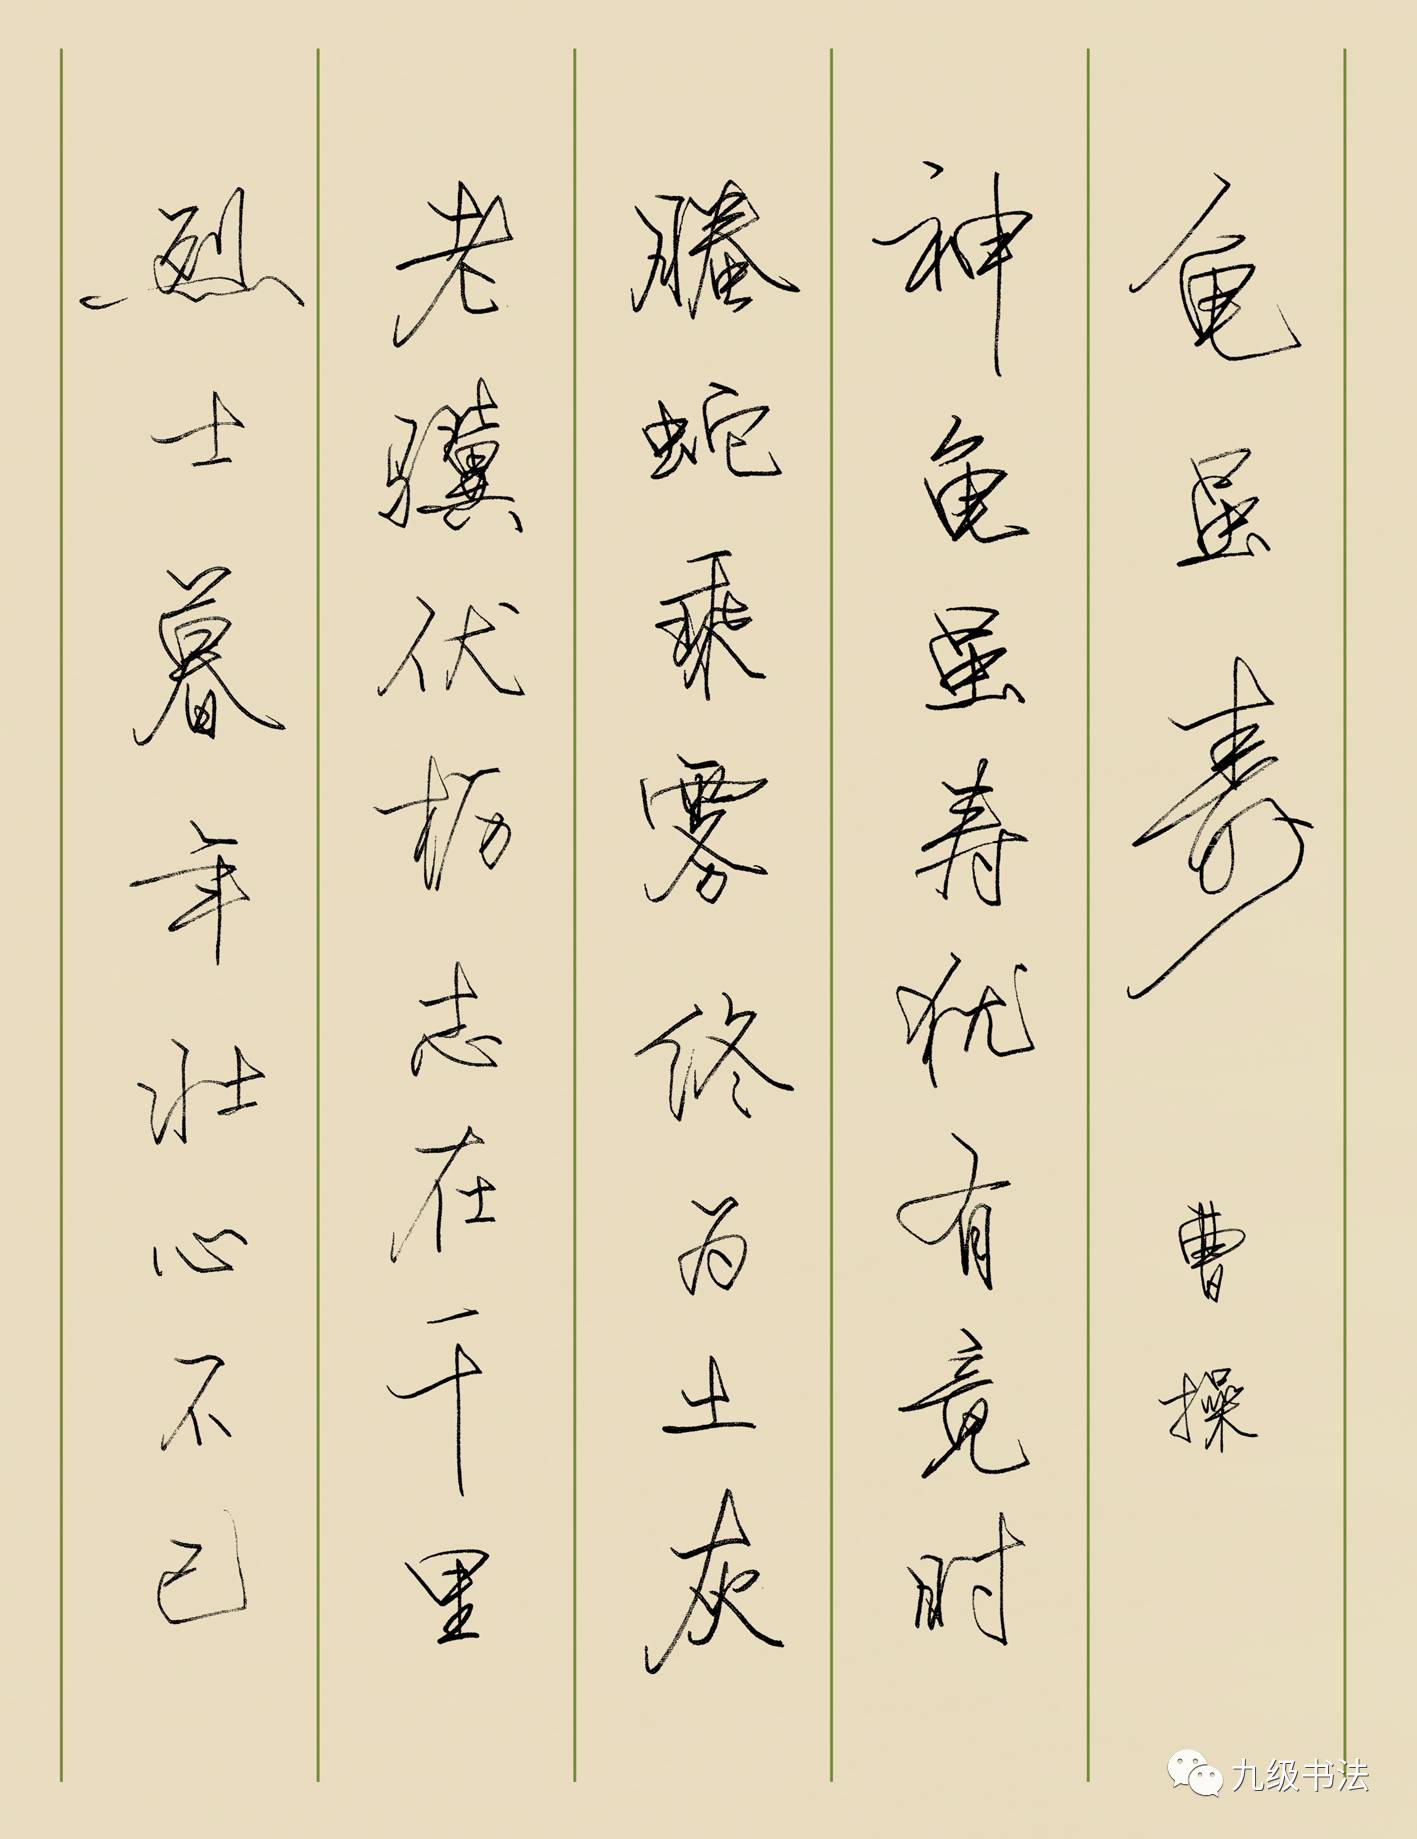 龟虽寿 曹操
神龟虽寿犹有竟时
螣蛇乘雾终为土灰
老骥伏枥志在千里
烈士暮年壮心不已
九级书法